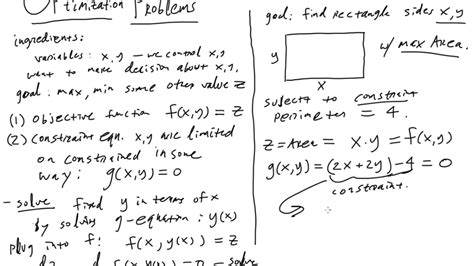 Optimization Problems
ingredients:
variables: x,y – we control x,y
want to make decision about x,y.
goal: max, min some other value z
(1) objective function f(x,y) = z
(2) constraint eqn. x,y are limited
or constrained in some
way: g(x,y) = 0
- solve find y in terms of x
by solving g-equation: y(x)
plug into f: f(x, y(x)) = z
goal: find rectangle sides x,y
y
w/ max Area.
x
subject to constraint
perimeter = 4.
z = Area = x·y = f(x,y)
g(x,y) = (2x+2y) - 4 = 0
constraint.